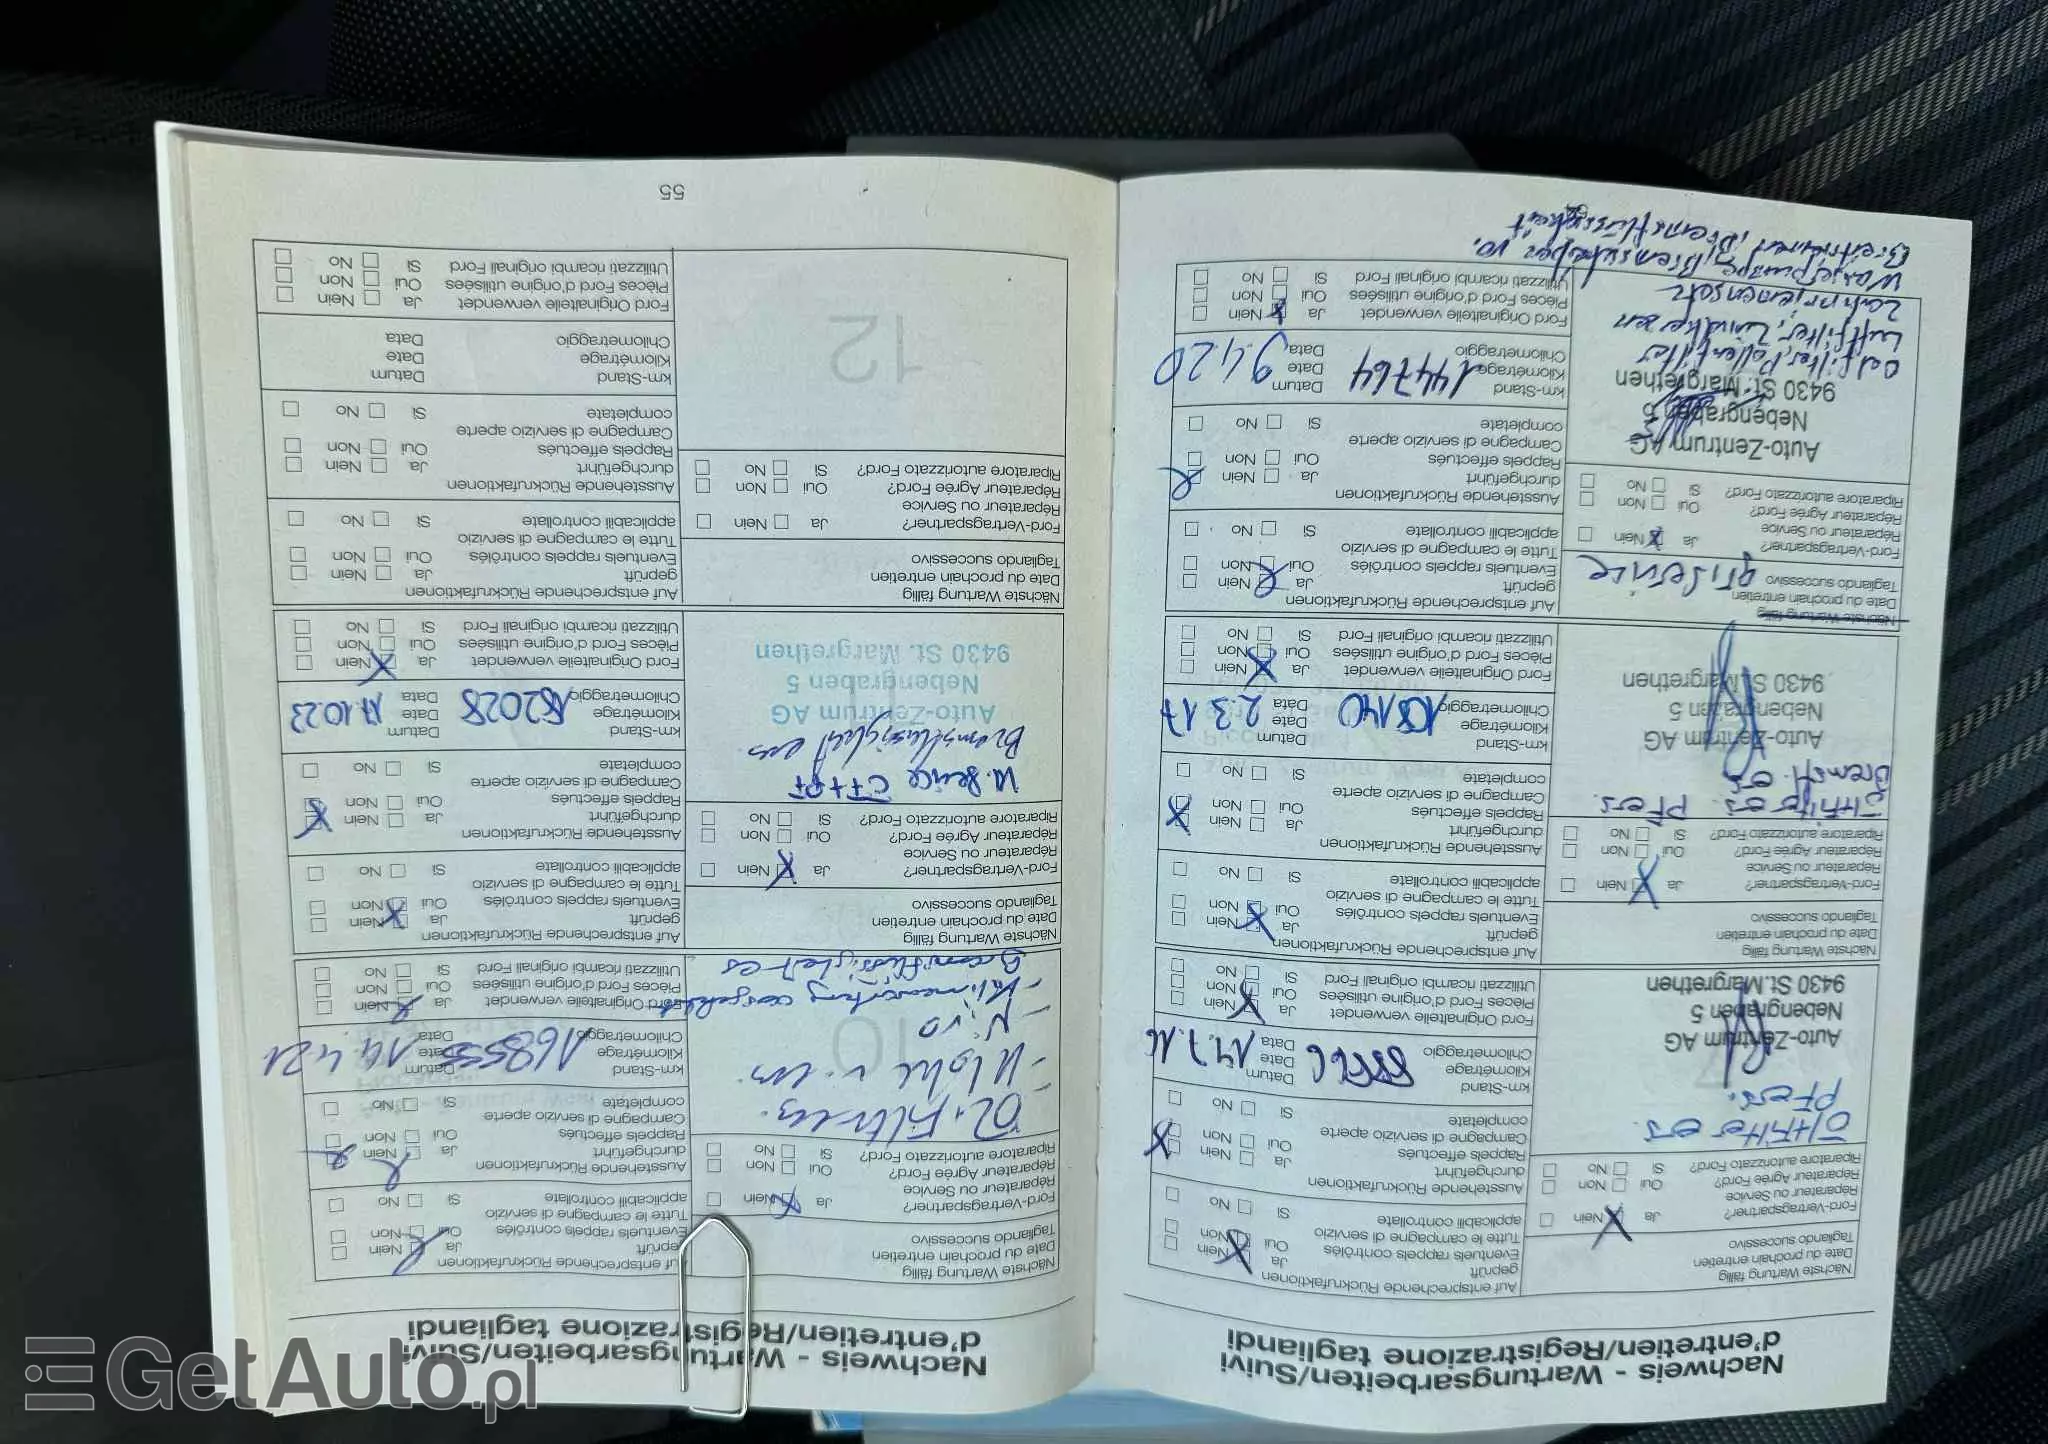 Nachweis - Wartungsarbeiten/Suivi
d'entretien/Registrazione tagliandi
Nächste Wartung fällig
Date du prochain entretien
Tagliando successivo
Ford-Vertragspartner?
Réparateur ou Service
Réparateur Agrée Ford?
Riparatore autorizzato Ford?
Ja Nein
Oui Non
Si No
Öl+Filter ers.
PF ers.
Auto-Zentrum AG
Nebengraben 5
9430 St.Margrethen
Auf entsprechende Rückrufaktionen
geprüft
Eventuels rappels contrôlés
Tutte le campagne di servizio
applicabili controllate
Ja Nein
Oui Non
Si No
Ausstehende Rückrufaktionen
durchgeführt
Rappels effectués
Campagne di servizio aperte
completate
Ja Nein
Oui Non
Si No
km-Stand
Kilométrage
Chilometraggio
Datum
Date
Data
14.7.16
Ford Originalteile verwendet
Pièces Ford d'origine utilisées
Utilizzati ricambi originali Ford
Ja Nein
Oui Non
Si No
Nächste Wartung fällig
Date du prochain entretien
Tagliando successivo
Ford-Vertragspartner?
Réparateur ou Service
Réparateur Agrée Ford?
Riparatore autorizzato Ford?
Ja Nein
Oui Non
Si No
Öl+Filter ers. PF ers.
Bremsfl. ers
Auto-Zentrum AG
Nebengraben 5
9430 St.Margrethen
Auf entsprechende Rückrufaktionen
geprüft
Eventuels rappels contrôlés
Tutte le campagne di servizio
applicabili controllate
Ja Nein
Oui Non
Si No
Ausstehende Rückrufaktionen
durchgeführt
Rappels effectués
Campagne di servizio aperte
completate
Ja Nein
Oui Non
Si No
km-Stand
Kilométrage
Chilometraggio
Datum
Date
Data
2.3.17
Ford Originalteile verwendet
Pièces Ford d'origine utilisées
Utilizzati ricambi originali Ford
Ja Nein
Oui Non
Si No
Nächste Wartung fällig
Date du prochain entretien
Tagliando successivo
Service
Ford-Vertragspartner?
Réparateur ou Service
Réparateur Agrée Ford?
Riparatore autorizzato Ford?
Ja Nein
Oui Non
Si No
Auto-Zentrum AG
Nebengraben 5
9430 St. Margrethen
Oelfilter, Pollenfilter
Luftfilter, Zündkerzen
Zahnriemensatz
Wasserpumpe, Bremsscheiben vo.
Bremsflüssigkeit
Auf entsprechende Rückrufaktionen
geprüft
Eventuels rappels contrôlés
Tutte le campagne di servizio
applicabili controllate
Ja Nein
Oui Non
Si No
Ausstehende Rückrufaktionen
durchgeführt
Rappels effectués
Campagne di servizio aperte
completate
Ja Nein
Oui Non
Si No
km-Stand
Kilométrage
Chilometraggio
144764
Datum
Date
Data
9.4.20
Ford Originalteile verwendet
Pièces Ford d'origine utilisées
Utilizzati ricambi originali Ford
Ja Nein
Oui Non
Si No
Nachweis - Wartungsarbeiten/Suivi
d'entretien/Registrazione tagliandi
Nächste Wartung fällig
Date du prochain entretien
Tagliando successivo
Ford-Vertragspartner?
Réparateur ou Service
Réparateur Agrée Ford?
Riparatore autorizzato Ford?
Ja Nein
Oui Non
Si No
10
- Klimawartung
Bremsflüssigkeit ers
Auf entsprechende Rückrufaktionen
geprüft
Eventuels rappels contrôlés
Tutte le campagne di servizio
applicabili controllate
Ja Nein
Oui Non
Si No
Ausstehende Rückrufaktionen
durchgeführt
Rappels effectués
Campagne di servizio aperte
completate
Ja Nein
Oui Non
Si No
km-Stand
Kilométrage
Chilometraggio
168555
Datum
Date
Data
14.4.21
Ford Originalteile verwendet
Pièces Ford d'origine utilisées
Utilizzati ricambi originali Ford
Ja Nein
Oui Non
Si No
Nächste Wartung fällig
Date du prochain entretien
Tagliando successivo
Ford-Vertragspartner?
Réparateur ou Service
Réparateur Agrée Ford?
Riparatore autorizzato Ford?
Ja Nein
Oui Non
Si No
Kl. Service
Bremsflüssigkeit ers
Auto-Zentrum AG
Nebengraben 5
9430 St. Margrethen
Auf entsprechende Rückrufaktionen
geprüft
Eventuels rappels contrôlés
Tutte le campagne di servizio
applicabili controllate
Ja Nein
Oui Non
Si No
Ausstehende Rückrufaktionen
durchgeführt
Rappels effectués
Campagne di servizio aperte
completate
Ja Nein
Oui Non
Si No
km-Stand
Kilométrage
Chilometraggio
182028
Datum
Date
Data
17.10.23
Ford Originalteile verwendet
Pièces Ford d'origine utilisées
Utilizzati ricambi originali Ford
Ja Nein
Oui Non
Si No
Nächste Wartung fällig
Date du prochain entretien
Tagliando successivo
Ford-Vertragspartner?
Réparateur ou Service
Réparateur Agrée Ford?
Riparatore autorizzato Ford?
Ja Nein
Oui Non
Si No
12
Auf entsprechende Rückrufaktionen
geprüft
Eventuels rappels contrôlés
Tutte le campagne di servizio
applicabili controllate
Ja Nein
Oui Non
Si No
Ausstehende Rückrufaktionen
durchgeführt
Rappels effectués
Campagne di servizio aperte
completate
Ja Nein
Oui Non
Si No
km-Stand
Kilométrage
Chilometraggio
Datum
Date
Data
Ford Originalteile verwendet
Pièces Ford d'origine utilisées
Utilizzati ricambi originali Ford
Ja Nein
Oui Non
Si No
55
GetAuto.pl